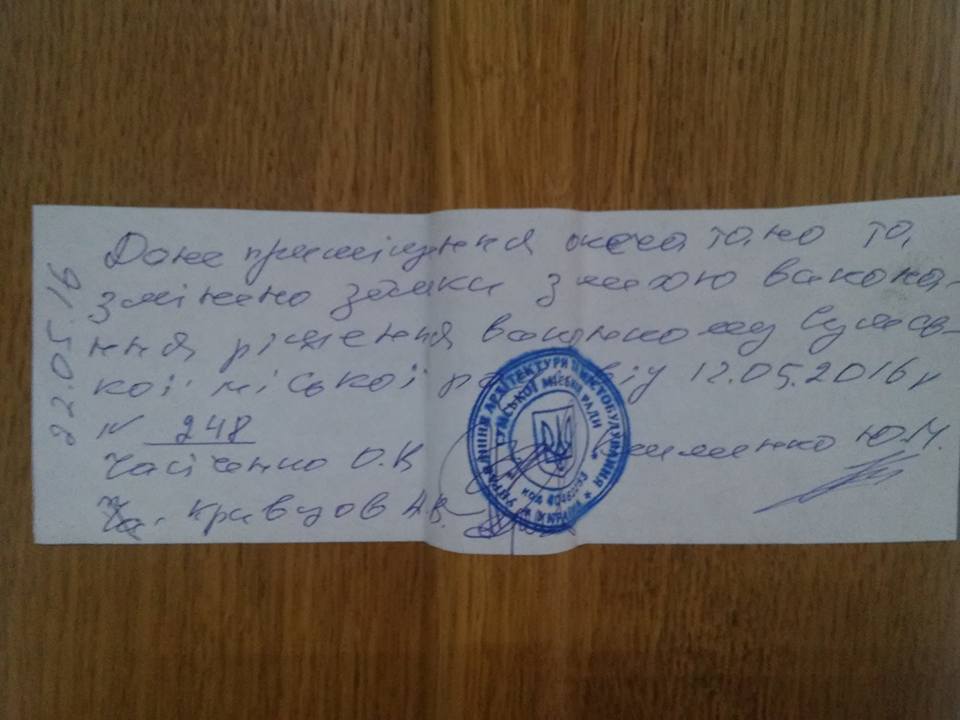 22.05.16
Дане приміщення опечатано та,
змінено замки з метою викона-
ння рішення виконкому Сумсь-
кої міської ради від 12.05.2016 р
№ 248
О.В Ю.М.
Кривцов А.В.
УПРАВЛІННЯ АРХІТЕКТУРИ ТА МІСТОБУДУВАННЯ
СУМСЬКОЇ МІСЬКОЇ РАДИ
КОД
УКРАЇНА